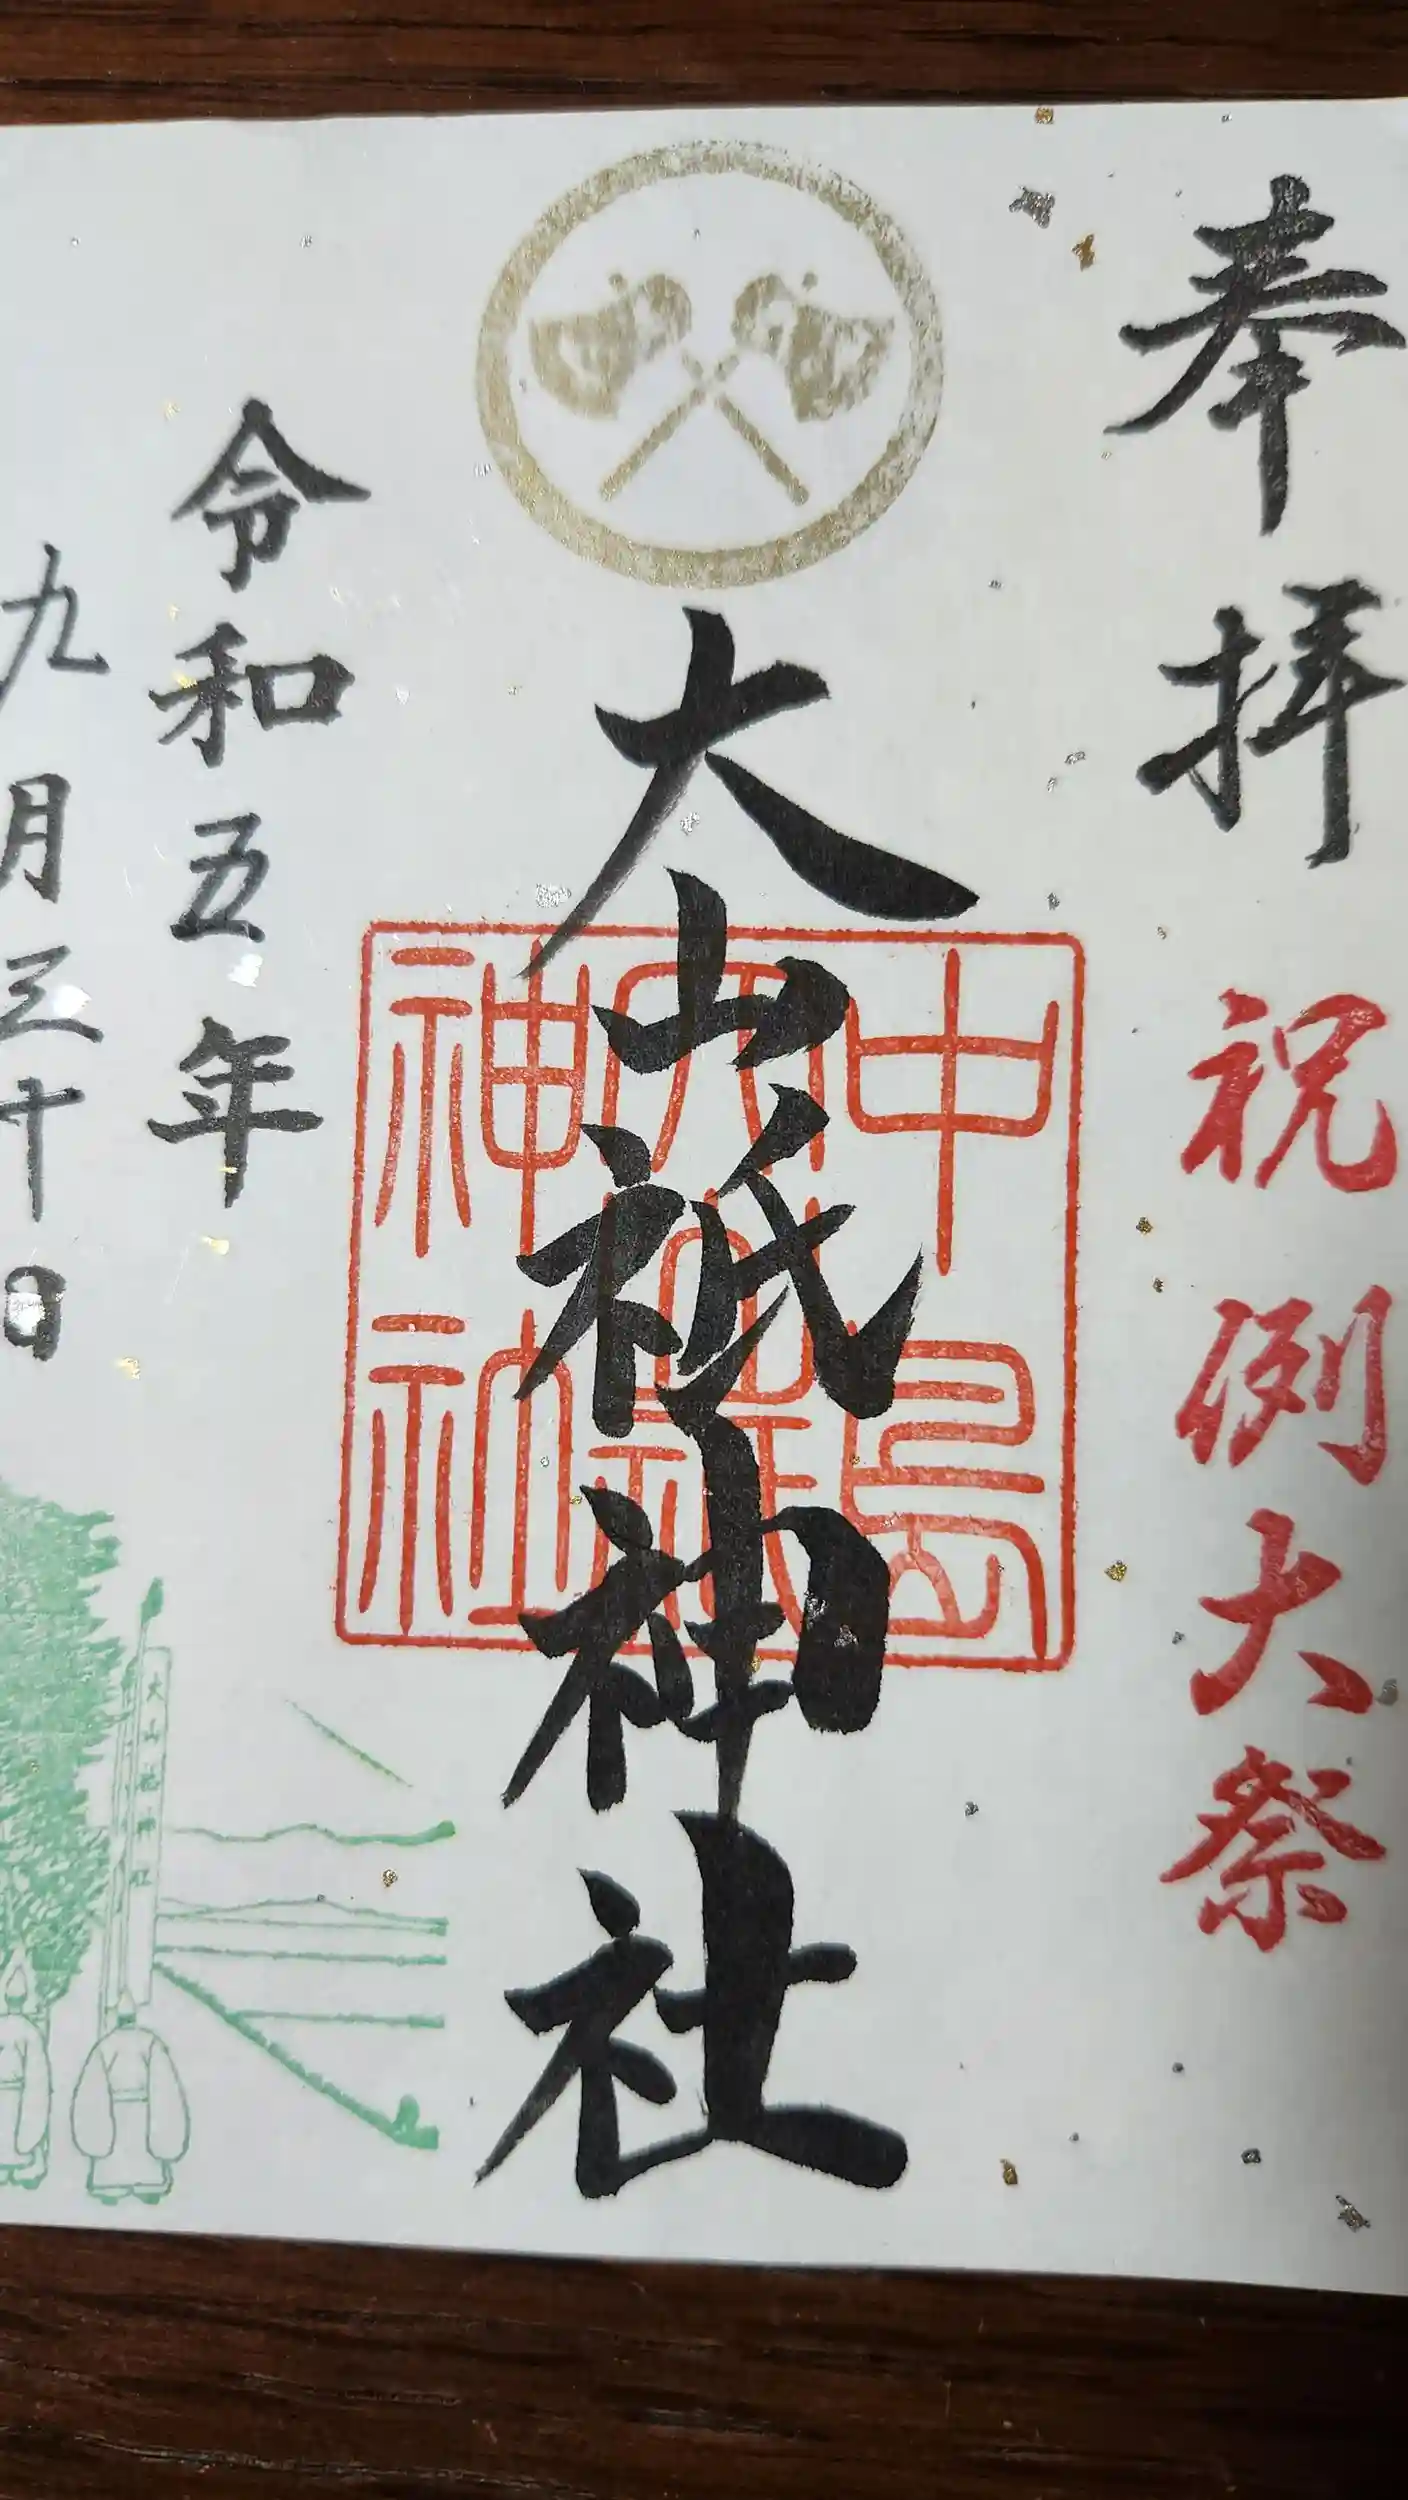 奉拝 祝例大祭
大山祇神社
中島
大山祇
神社
令和五年
九月三十日
大山祇神社